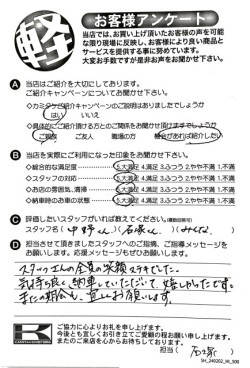 軽
お客様アンケート
当店では、お買い上げ頂いたお客様の声を可能
な限り現場に反映し、お客様により良い商品と
サービスを提供する事に努めています。
大変お手数ですが是非お声をお聞かせ下さい。
A 当店はご紹介を大切にしております。
ご紹介キャンペーンについてお聞かせ下さい。
◇カミタケご紹介キャンペーンのご説明はありましたでしょうか
はい いいえ
◇具体的にご紹介頂ける方とのご関係をお聞かせ頂けますでしょうか
ご親族 ご友人 職場の方 機会があれば紹介したい
B 当店を実際にご利用になった印象をお聞かせ下さい。
◇総合的な満足度 5.大満足 4.満足 3.ふつう 2.やや不満 1.不満
◇スタッフの対応 5.大満足 4.満足 3.ふつう 2.やや不満 1.不満
◇お店の雰囲気、清掃 5.大満足 4.満足 3.ふつう 2.やや不満 1.不満
◇納車時のお車の状態 5.大満足 4.満足 3.ふつう 2.やや不満 1.不満
C 評価したいスタッフがいれば教えてください。(複数回答可)
スタッフ名( 中野くん )( 石塚くん )( みんな )
D 担当させて頂きましたスタッフへのご指摘、ご指導メッセージを
お願いします。応援メッセージもぜひお聞かせ下さい。
スタッフさんの全員の笑顔ステキでした。
気持ち良く納車していただいて、嬉しかったです。
またの機会も、宜しくお願いします。
K
ご協力に心よりお礼を申し上げます。
今後とも宜しくお引き立てご愛顧の程お願い申し上げます。
またのご来店を心からお待ちしております。
担当( 石塚 )
SH_240202_IR_500